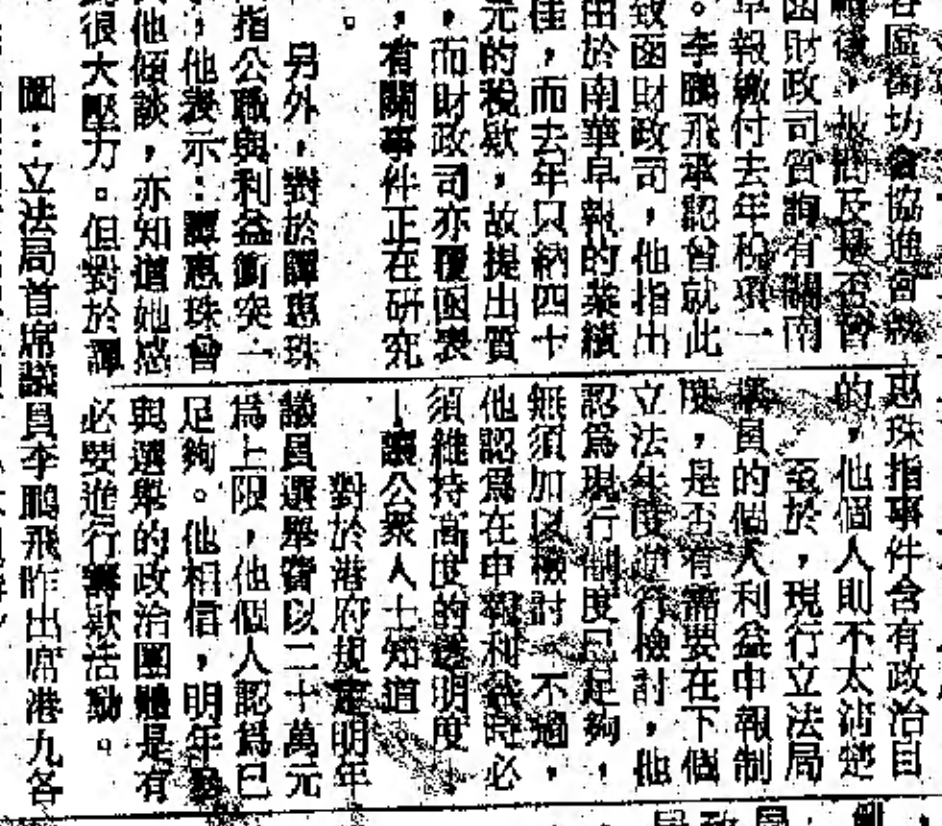 各區街坊會協進會就
職後，被問及是否曾
函財政司質詢有關南
華早報繳付去年稅項一
。李鵬飛承認曾就此
致函財政司，他指出
由於南華早報的業績
佳，而去年只納四十
元的稅款，故提出質
，而財政司亦覆函表
，有關事件正在研究
。
另外，對於譚惠珠
指公職與利益衝突一
，他表示：譚惠珠曾
他傾談，亦知道她感
很大壓力。但對於譚
惠珠指事件含有政治目
的，他個人則不太清楚
至於，現行立法局
議員的個人利益申報制
度，是否有需要在下個
立法年度進行檢討，他
認為現行制度已足夠，
無須加以檢討。不過，
他認為在申報利益時必
須維持高度的透明度，
讓公衆人士知道。
對於港府規定明年
議員選舉費以二十萬元
為上限，他個人認爲已
足夠。他相信，明年
與選舉的政治團體是有
必要進行籌款活動。
圖：立法局首席議員李鵬飛昨出席港九各